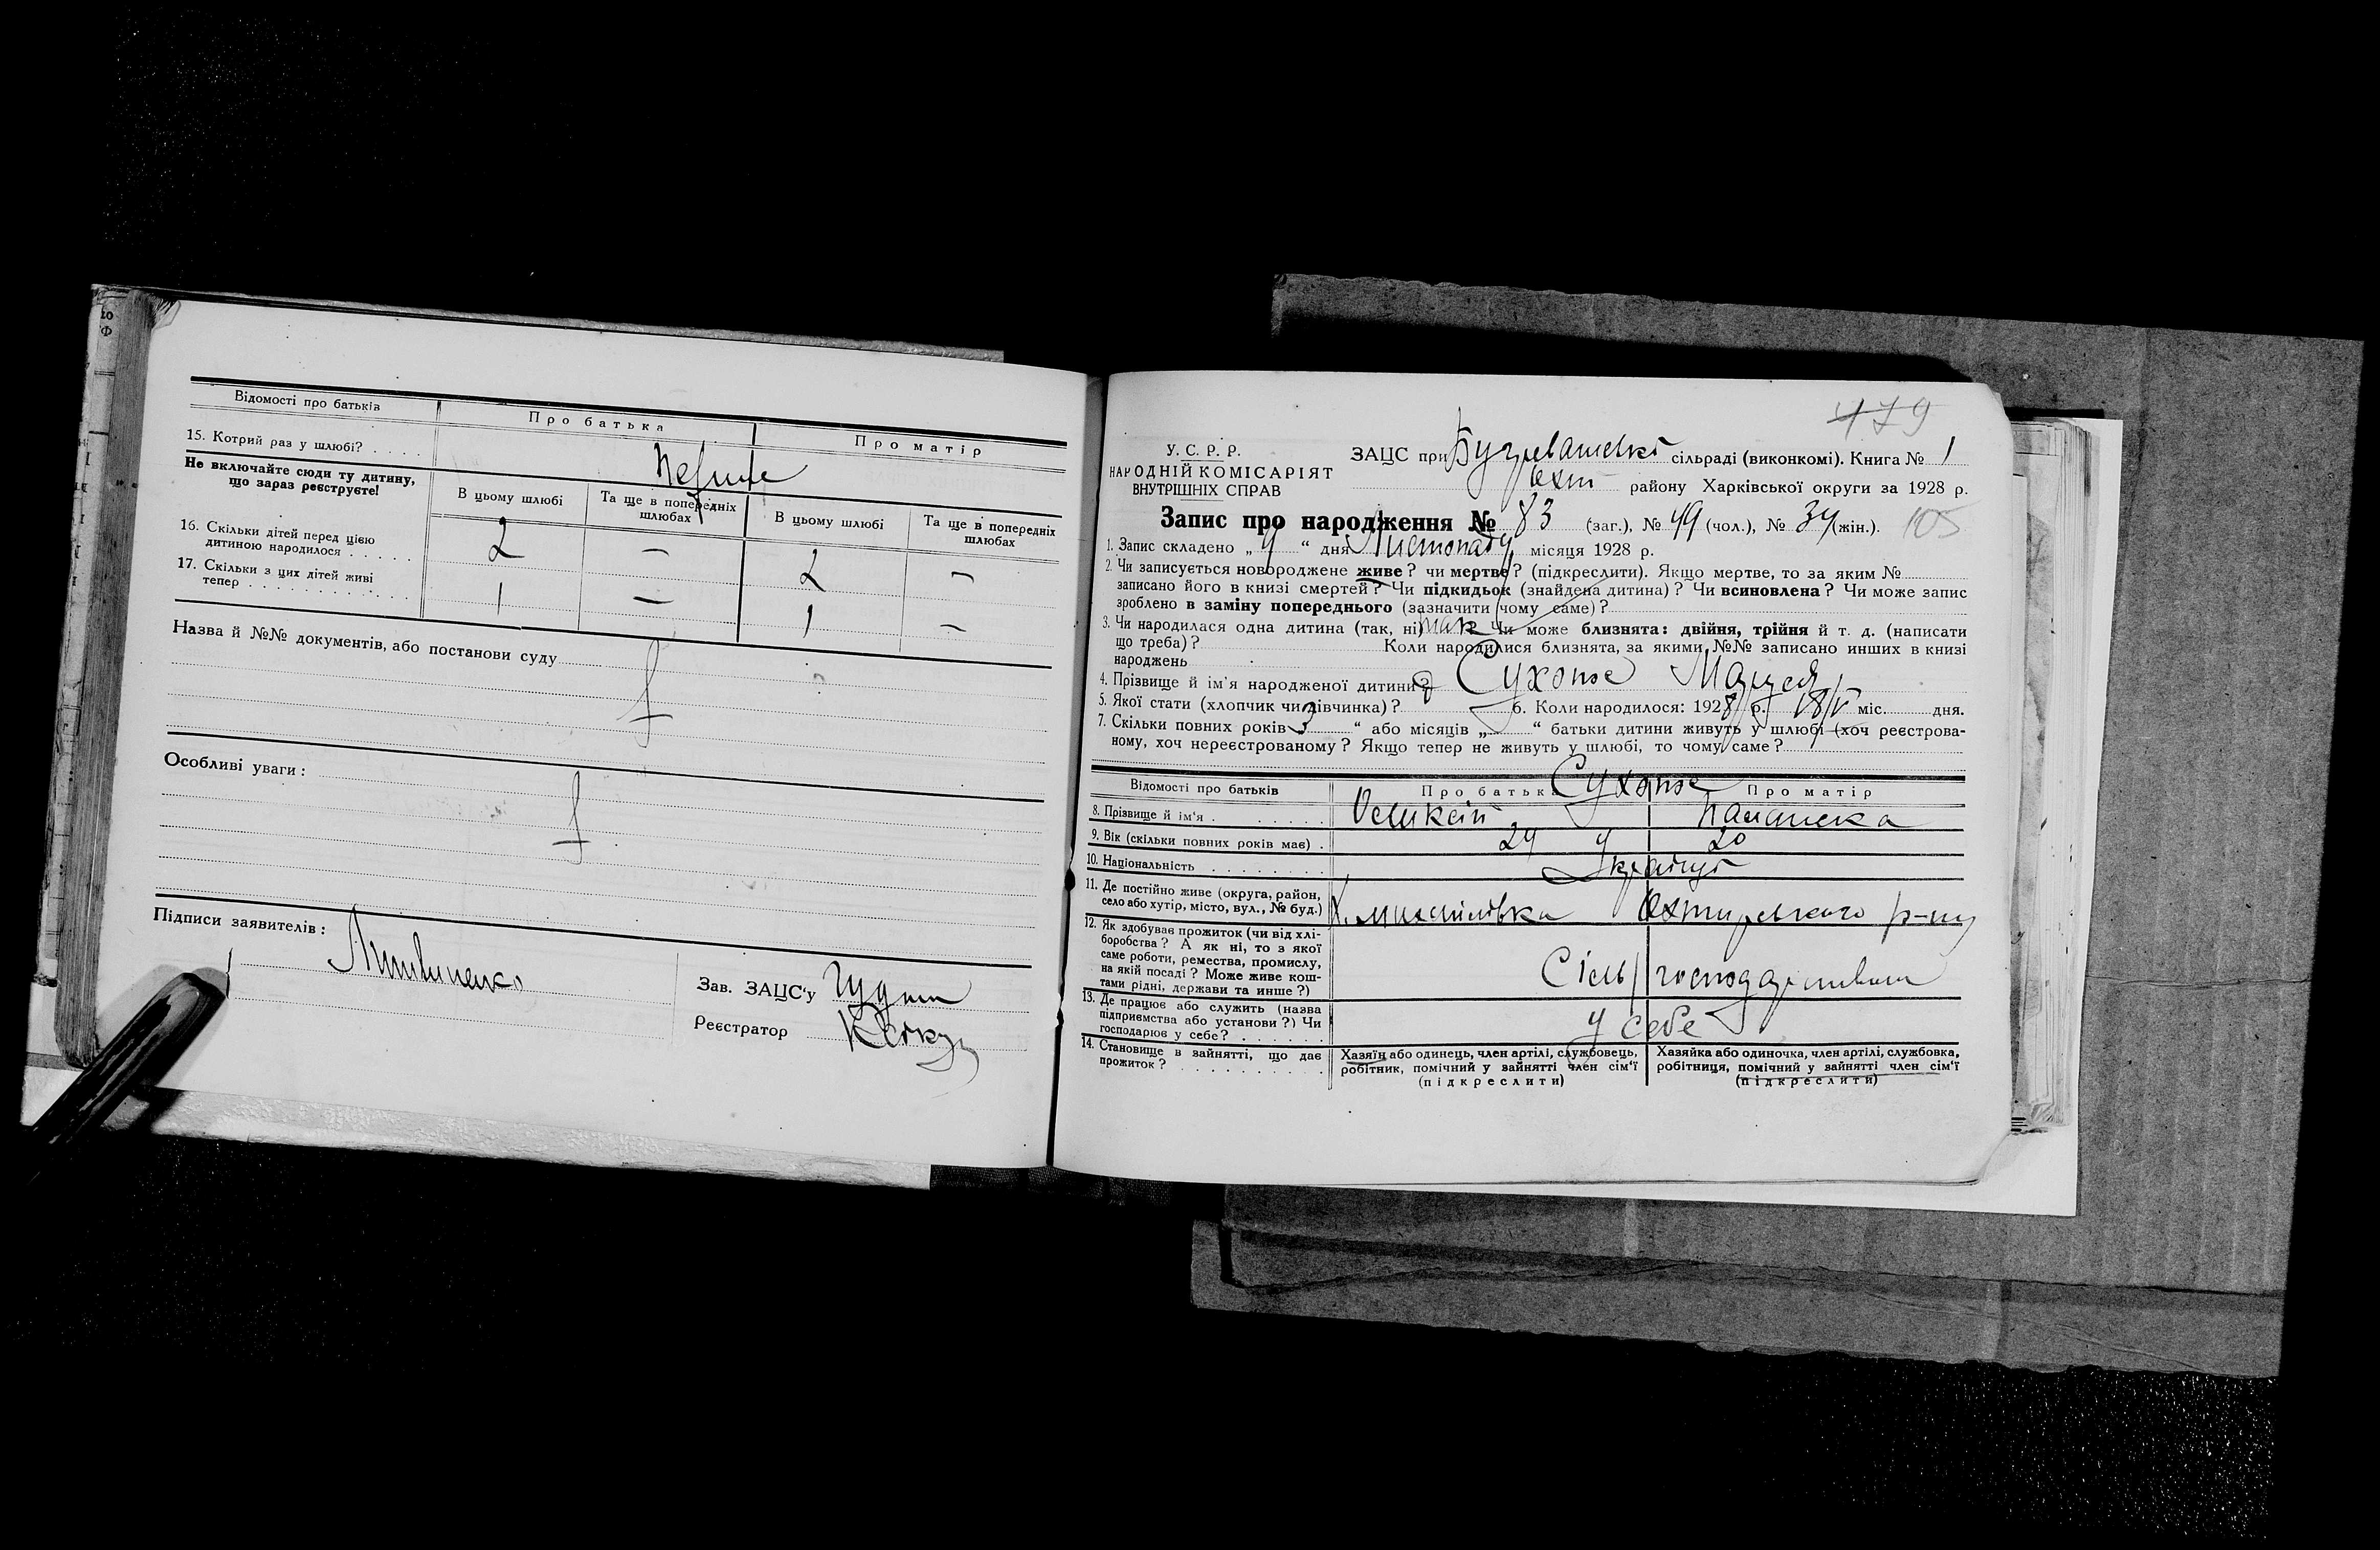 Відомості про батьків
Про батька
Про матір
15. Котрий раз у шлюбі? . . . .
Перше
Не включайте сюди ту дитину,
що зараз реєструєте!
В цьому шлюбі
Та ще в попередніх
шлюбах
В цьому шлюбі
Та ще в попередніх
шлюбах
16. Скільки дітей перед цією
дитиною народилося . . . . .
2 — 2 —
17. Скільки з цих дітей живі
тепер . . . . . . . . . . . .
1 — 1 —
Назва й №№ документів, або постанови суду
Особливі уваги:
Підписи заявителів:
Литвиненко
Зав. ЗАЦС'у
Реєстратор
479
У. С. Р. Р.
НАРОДНІЙ КОМІСАРІЯТ
ВНУТРІШНІХ СПРАВ
ЗАЦС при сільраді (виконкомі). Книга № 1
Охт району Харківської округи за 1928 р.
Запис про народження № 83 (заг.), № 49 (чол.), № 34 (жін.). 105
1. Запис складено „ 4 “ дня Листопаду місяця 1928 р.
2. Чи записується новороджене живе? чи мертве? (підкреслити). Якщо мертве, то за яким №
записано його в книзі смертей? Чи підкидьок (знайдена дитина)? Чи всиновлена? Чи може запис
зроблено в заміну попереднього (зазначити чому саме)?
3. Чи народилася одна дитина (так, ні) так Чи може близнята: двійня, трійня й т. д. (написати
що треба)? Коли народилися близнята, за якими №№ записано инших в книзі
народжень
4. Прізвище й ім'я народженої дитини? Сухопе Маруся
5. Якої стати (хлопчик чи дівчинка)? 6. Коли народилося: 1928 р. міс. дня.
7. Скільки повних років 3 “ або місяців „ “ батьки дитини живуть у шлюбі (хоч реєстрова-
ному, хоч нереєстрованому? Якщо тепер не живуть у шлюбі, то чому саме?
Відомості про батьків
Про батька
Про матір
Сухопе
8. Прізвище й ім'я . . . . . .
9. Вік (скільки повних років має) .
20
10. Національність . . . . . . . .
11. Де постійно живе (округа, район,
село або хутір, місто, вул., № буд.)
х. Михайлівка Охтирського р-ну
12. Як здобуває прожиток (чи від хлі-
боробства? А як ні, то з якої
саме роботи, ремества, промислу,
на якій посаді? Може живе кош-
тами рідні, держави та инше?)
13. Де працює або служить (назва
підприємства або установи?) Чи
господарює у себе? . . . . . .
у себе
14. Становище в зайнятті, що дає
прожиток? . . . . . . . . . .
Хазяїн або одинець, член артілі, службовець,
робітник, помічний у зайнятті член сім'ї
(підкреслити)
Хазяйка або одиночка, член артілі, службовка,
робітниця, помічний у зайнятті член сім'ї
(підкреслити)